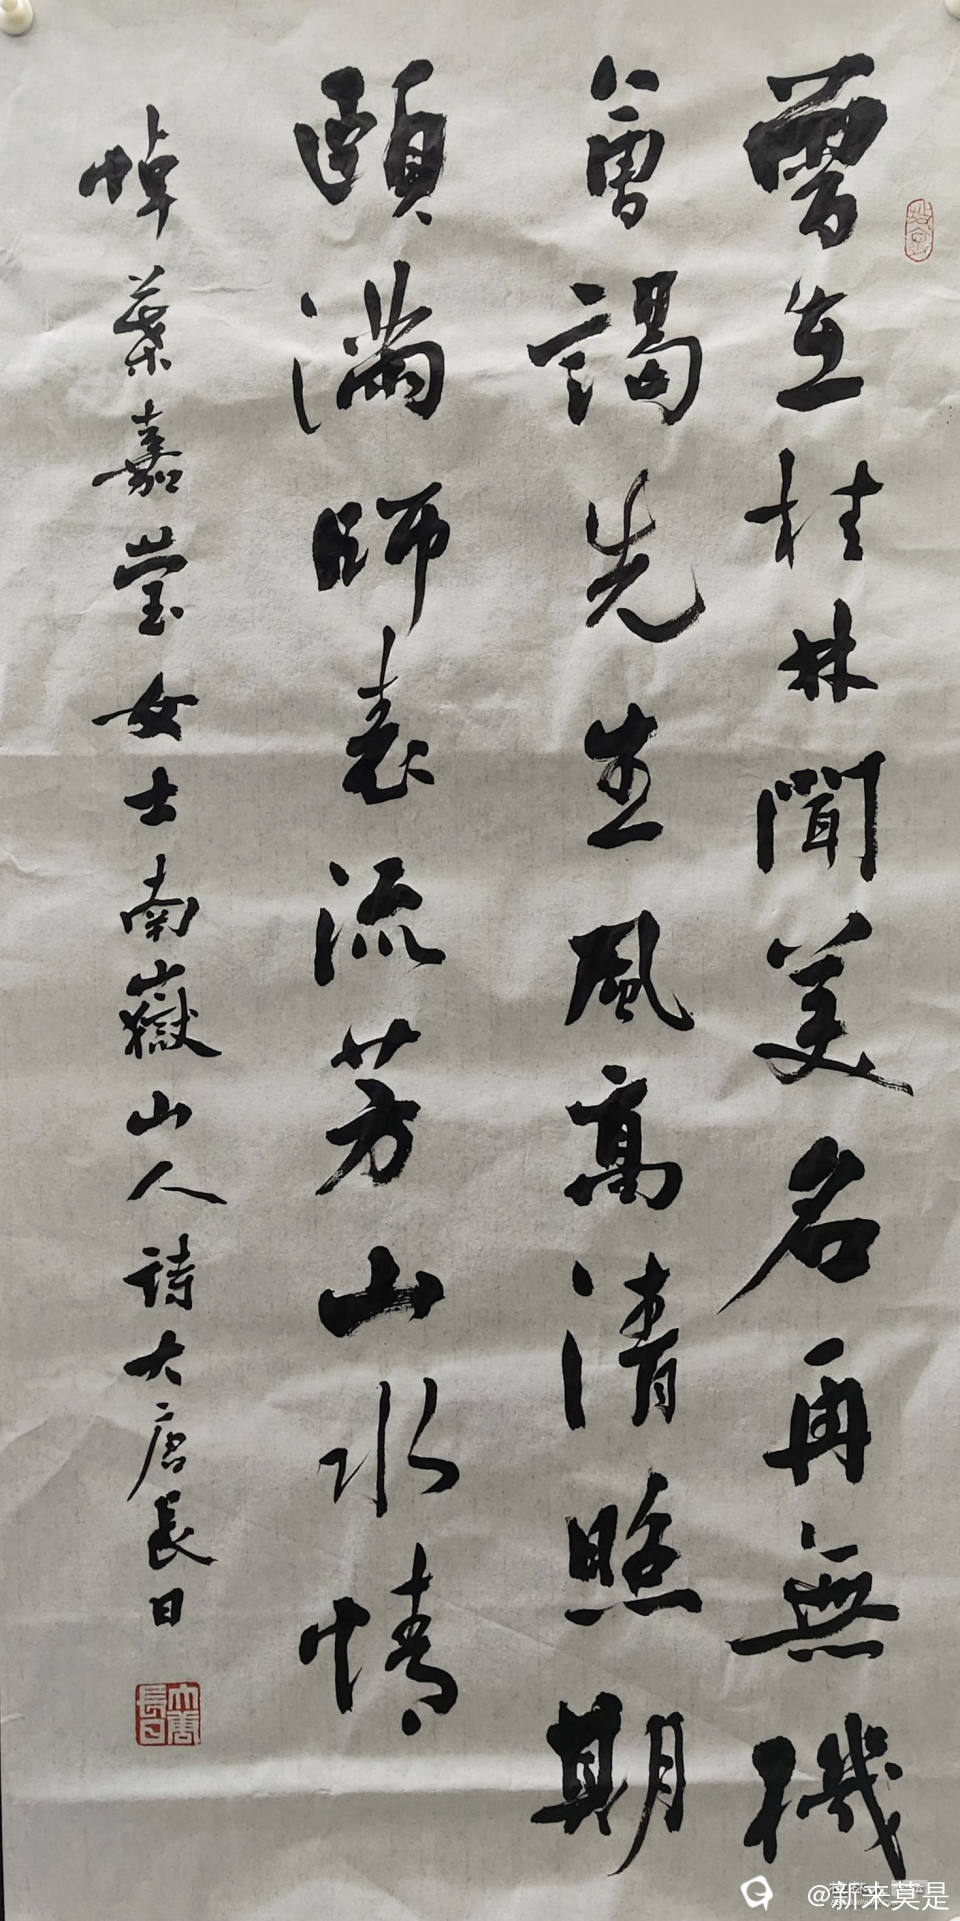 曾在桂林聞美名再無機
會謁先生風高清照期
頤滿師表流芳山水情
悼葉嘉瑩女士南嶽山人詩大唐長日
大唐長日
@新来莫是